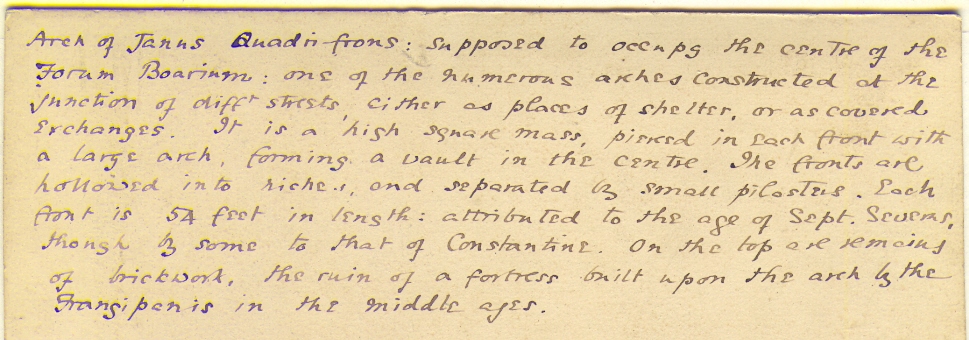 Arch of Janus Quadri-frons: supposed to occupy the centre of the
Forum Boarium: one of the numerous arches constructed at the
junction of difft streets, either as places of shelter, or as covered
exchanges. It is a high square mass, pierced in each front with
a large arch, forming a vault in the centre. The fronts are
hollowed into niches, and separated by small pilasters. Each
front is 54 feet in length: attributed to the age of Sept. Severus,
though by some to that of Constantine. On the top are remains
of brickwork, the ruin of a fortress built upon the arch by the
Frangipanis in the middle ages.